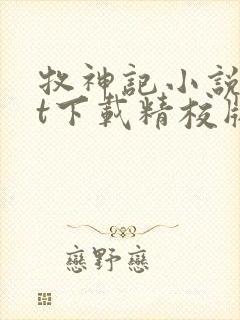 牧神記小說
t下載精校
戀野戀